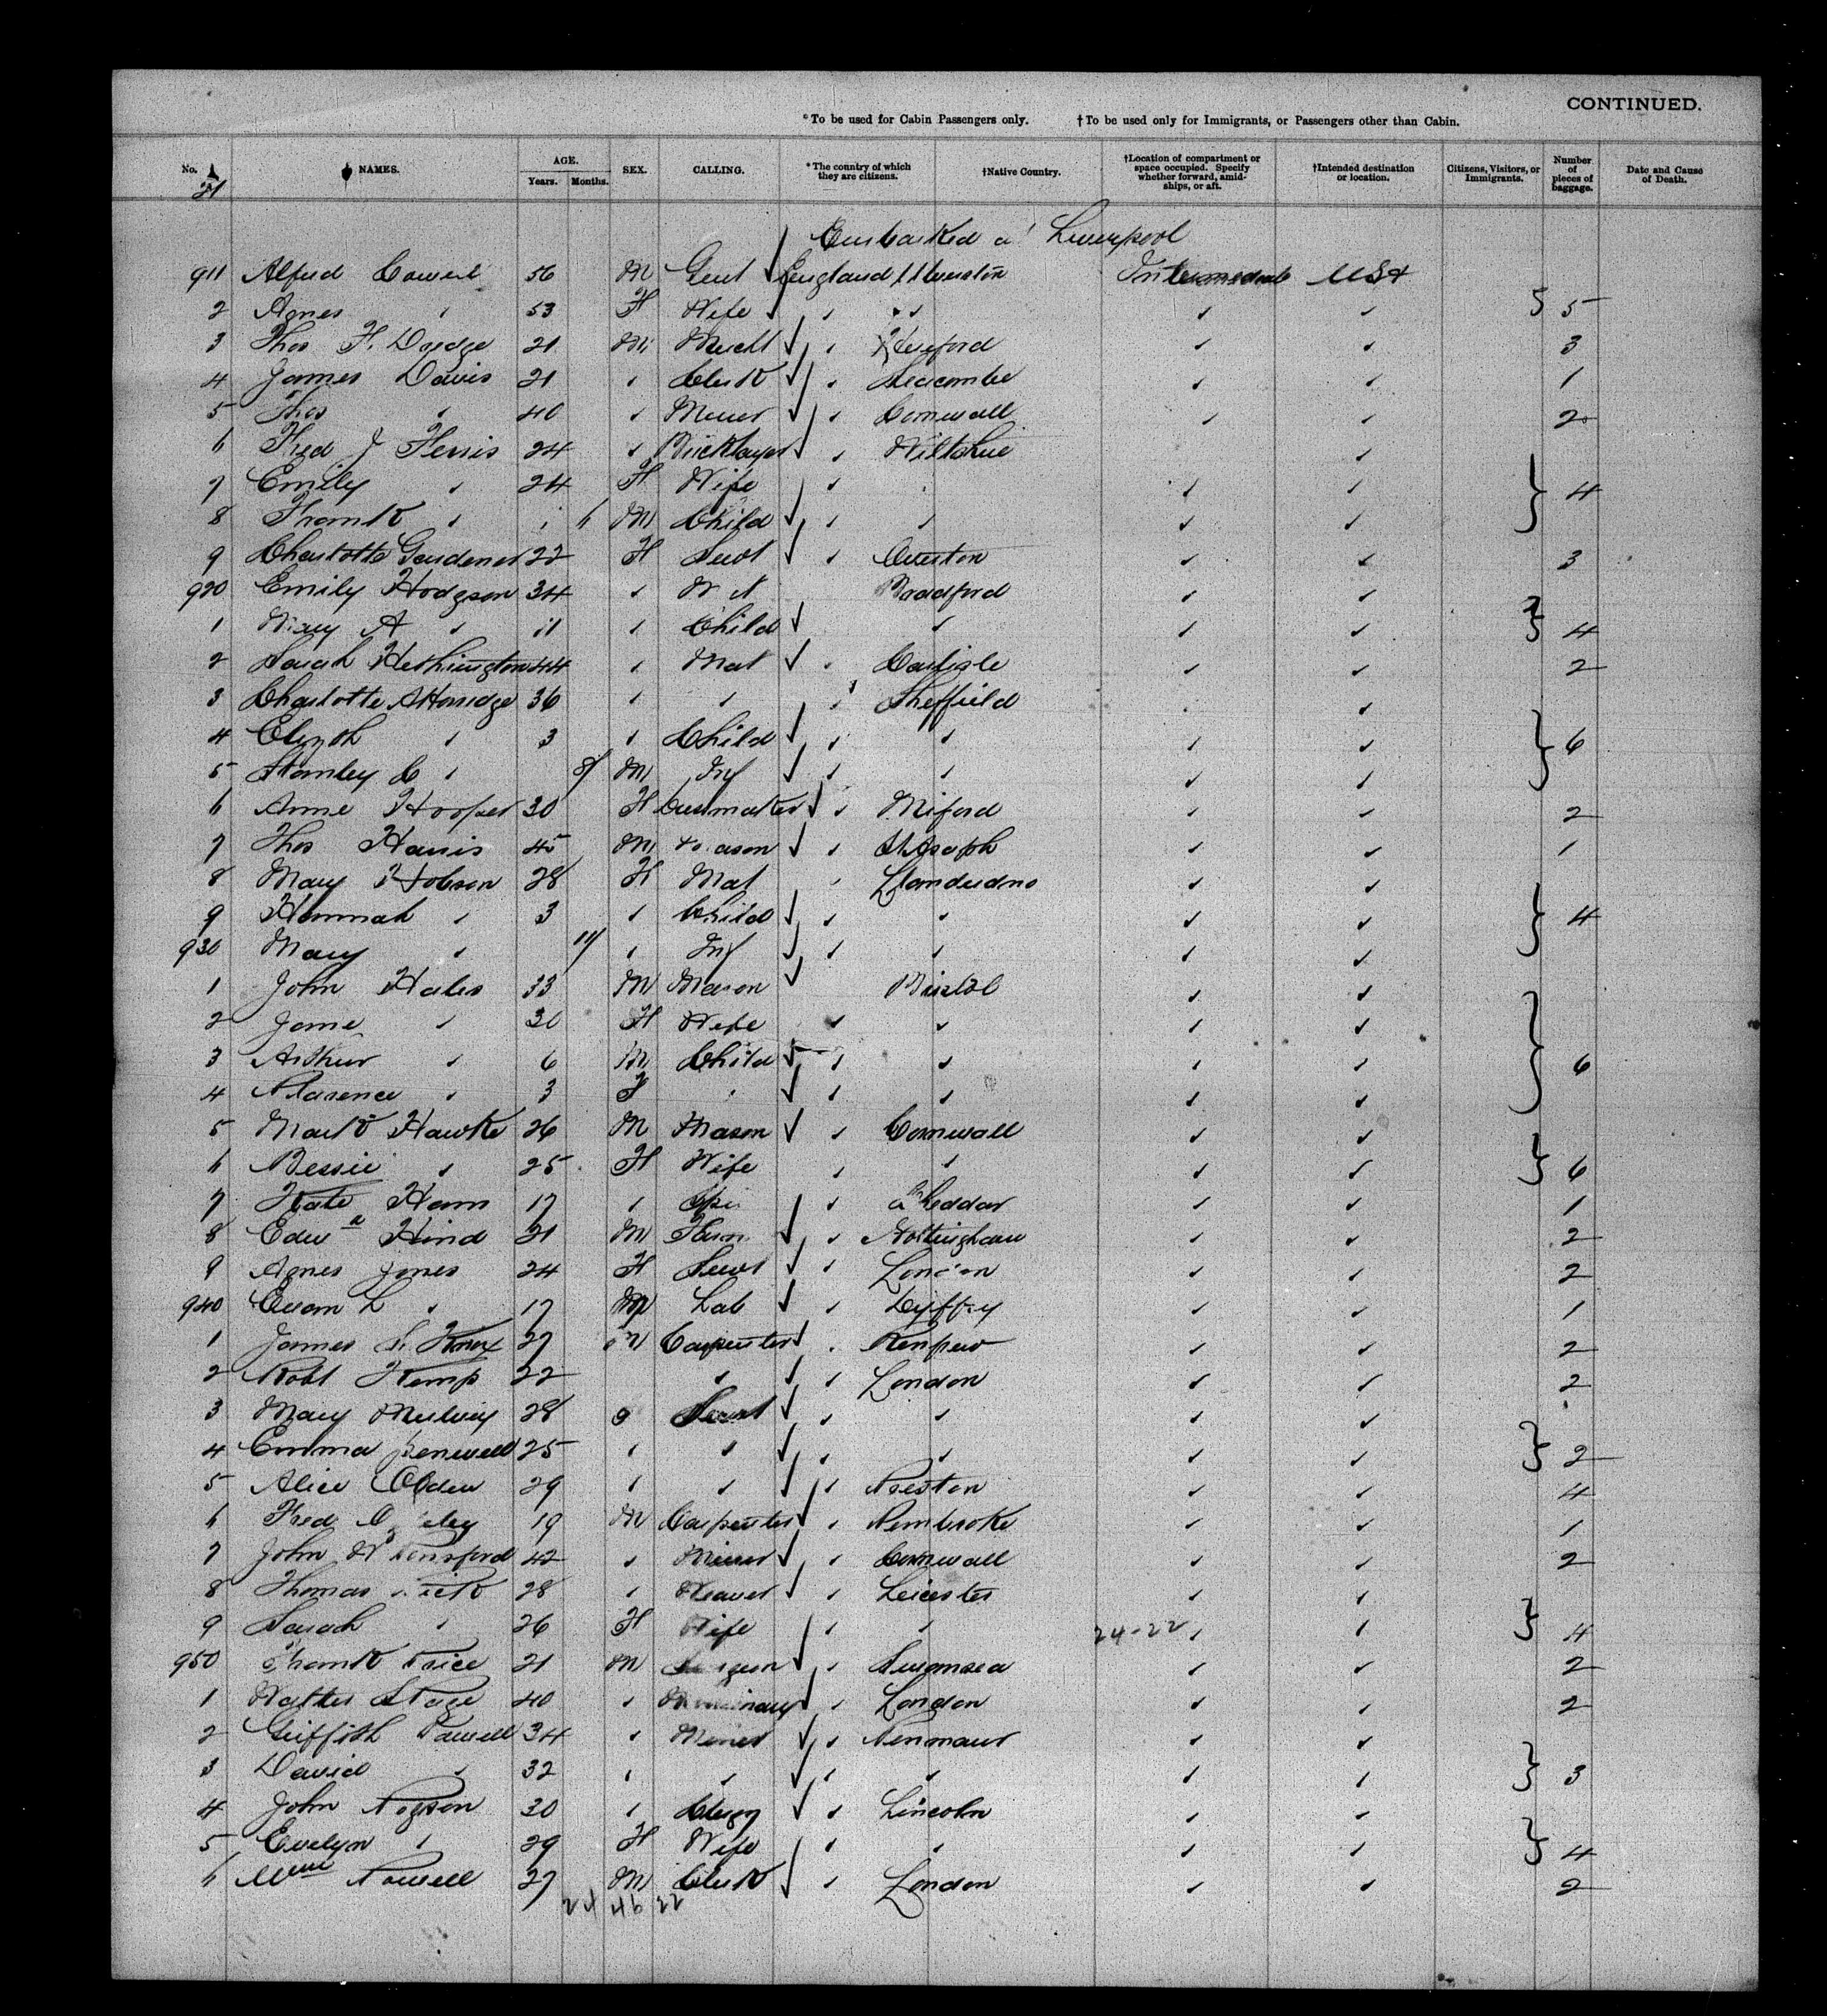 CONTINUED.
*To be used for Cabin Passengers only. †To be used only for Immigrants, or Passengers other than Cabin.
No. NAMES. AGE. Years. Months. SEX. CALLING. *The country of which they are citizens. †Native Country. †Location of compartment or space occupied. Specify whether forward, amidships, or aft. †Intended destination or location. Citizens, Visitors, or Immigrants. Number of pieces of baggage. Date and Cause of Death.
21
Embarked a Liverpool
911 Alfred 56 M Gent England Ulverston Intermediate USA
2 Agnes " 53 F Wife " " " " 5
3 Thos F. Dredge 21 M Hereford " " 3
4 James Davis 21 " Clerk " Seacombe " " 1
5 Thos " 40 " Miner " Cornwall " " 2
6 Fred J Ferris 24 " Bricklayer " Wiltshire "
7 Emily " 24 F Wife " " " 4
8 Frank " 1 6 M Child " " " "
9 Charlotte Gardener 22 F Servt " " " 3
920 Emily Hodgson 34 " Bradford " "
1 Mary A " 11 " Child " " " 4
2 Sarah Hethington 44 " Mat " Carlisle " " 2
3 Charlotte A Horridge 36 " " " Sheffield "
4 Elizth " 3 " Child " " " " 6
5 Stanley C " 8 M Inf " " " "
6 Anne Hooper 30 F " " " 2
7 Thos Harris 45 M Mason " St Asaph " " 1
8 Mary Hobson 28 F Mat " Llandudno " "
9 Hannah " 3 " Child " " " " 4
930 Mary " 11 " Inf " " " "
1 John Hales 33 M Mason Bristol " "
2 Jane " 30 F Wife " " " "
3 Arthur " 6 M Child " " " " 6
4 Florence " 3 F " " " " "
5 Mark Hawke 26 M Mason " Cornwall " "
6 Bessie " 25 F Wife " " " " 6
7 Kate Ham 17 " Spi " Cheddar " " 1
8 Edwd Hind 21 M " Nottingham " " 2
9 Agnes Jones 24 F Servt " London " " 2
940 Evan L " 17 M Lab " " " 1
1 James S. Knox 27 M Carpenter " Renfrew " " 2
2 Robt Kemp 22 " " London " " 2
3 Mary 28 Servt " " " "
4 Emma 25 " " " " " " 2
5 Alice Ogden 29 " " " Preston " " 4
6 Fred 19 M Carpenter " Pembroke " " 1
7 John 42 " Miner " Cornwall " " 2
8 Thomas 28 " Weaver " Leicester " "
9 Sarah " 26 F Wife " " 24-22 " " 4
950 Frank Price 21 M " Swansea " " 2
1 Walter 40 " " London " " 2
2 Griffith Powell 34 " Miner " Penmaur " "
3 David " 32 " " " " " " 3
4 John Pogson 30 " Clergy " Lincoln " "
5 Evelyn " 29 F Wife " " " " 4
6 Wm Powell 27 M Clerk " London " " 2
24 46 22